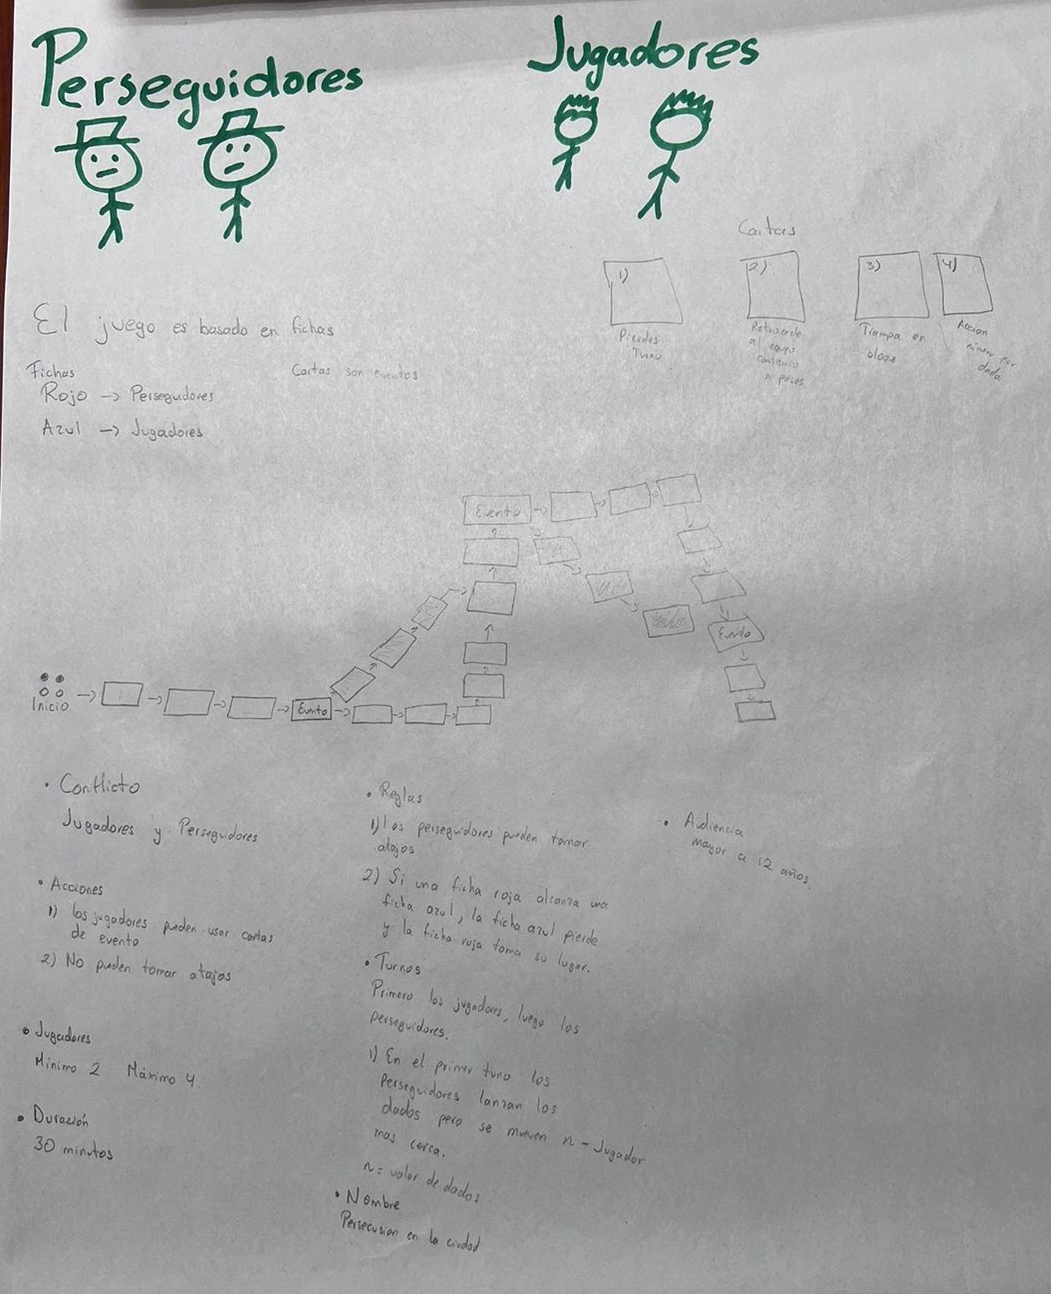 Perseguidores
Jugadores
Cartas
1)
2)
3)
4)
Pierdes
Turno
Retrocede
al equipo
contrario
n pasos
Trampa en
Accion
por
dado
El juego es basado en fichas
Fichas
Cartas son eventos
Rojo → Perseguidores
Azul → Jugadores
Evento
Evento
Inicio
Evento
• Conflicto
Jugadores y Perseguidores
• Acciones
1) los jugadores pueden usar cartas
de evento
2) No pueden tomar atajos
• Jugadores
Minimo 2 Máximo 4
• Duración
30 minutos
• Reglas
1) Los perseguidores pueden tomar
atajos
2) Si una ficha roja alcanza una
ficha azul, la ficha azul pierde
y la ficha roja toma su lugar.
• Turnos
Primero los jugadores, luego los
perseguidores.
1) En el primer tuno los
Perseguidores lanzan los
dados pero se mueven n - Jugador
mas cerca.
n = valor de dados
• Nombre
Persecusion en la ciudad
• Audiencia
mayor a 12 años.